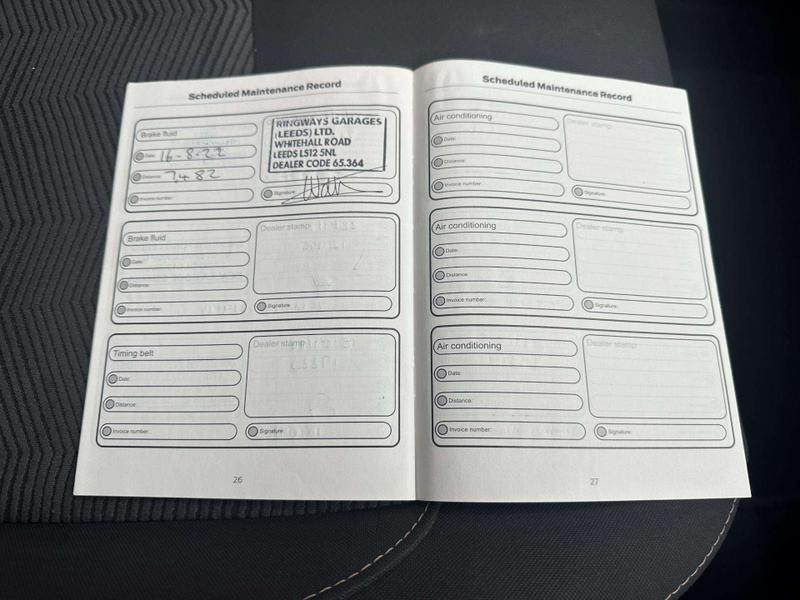 Scheduled Maintenance Record
Brake fluid
Date: 16-8-22
Distance: 7482
Invoice number:
RINGWAYS GARAGES
(LEEDS) LTD.
WHITEHALL ROAD
LEEDS LS12 5NL
DEALER CODE 65.364
Signature:
Brake fluid
Date:
Distance:
Invoice number:
Dealer stamp
Signature:
Timing belt
Date:
Distance:
Invoice number:
Dealer stamp
Signature:
26
Scheduled Maintenance Record
Air conditioning
Date:
Distance:
Invoice number:
Dealer stamp
Signature:
Air conditioning
Date:
Distance:
Invoice number:
Dealer stamp
Signature:
Air conditioning
Date:
Distance:
Invoice number:
Dealer stamp
Signature:
27